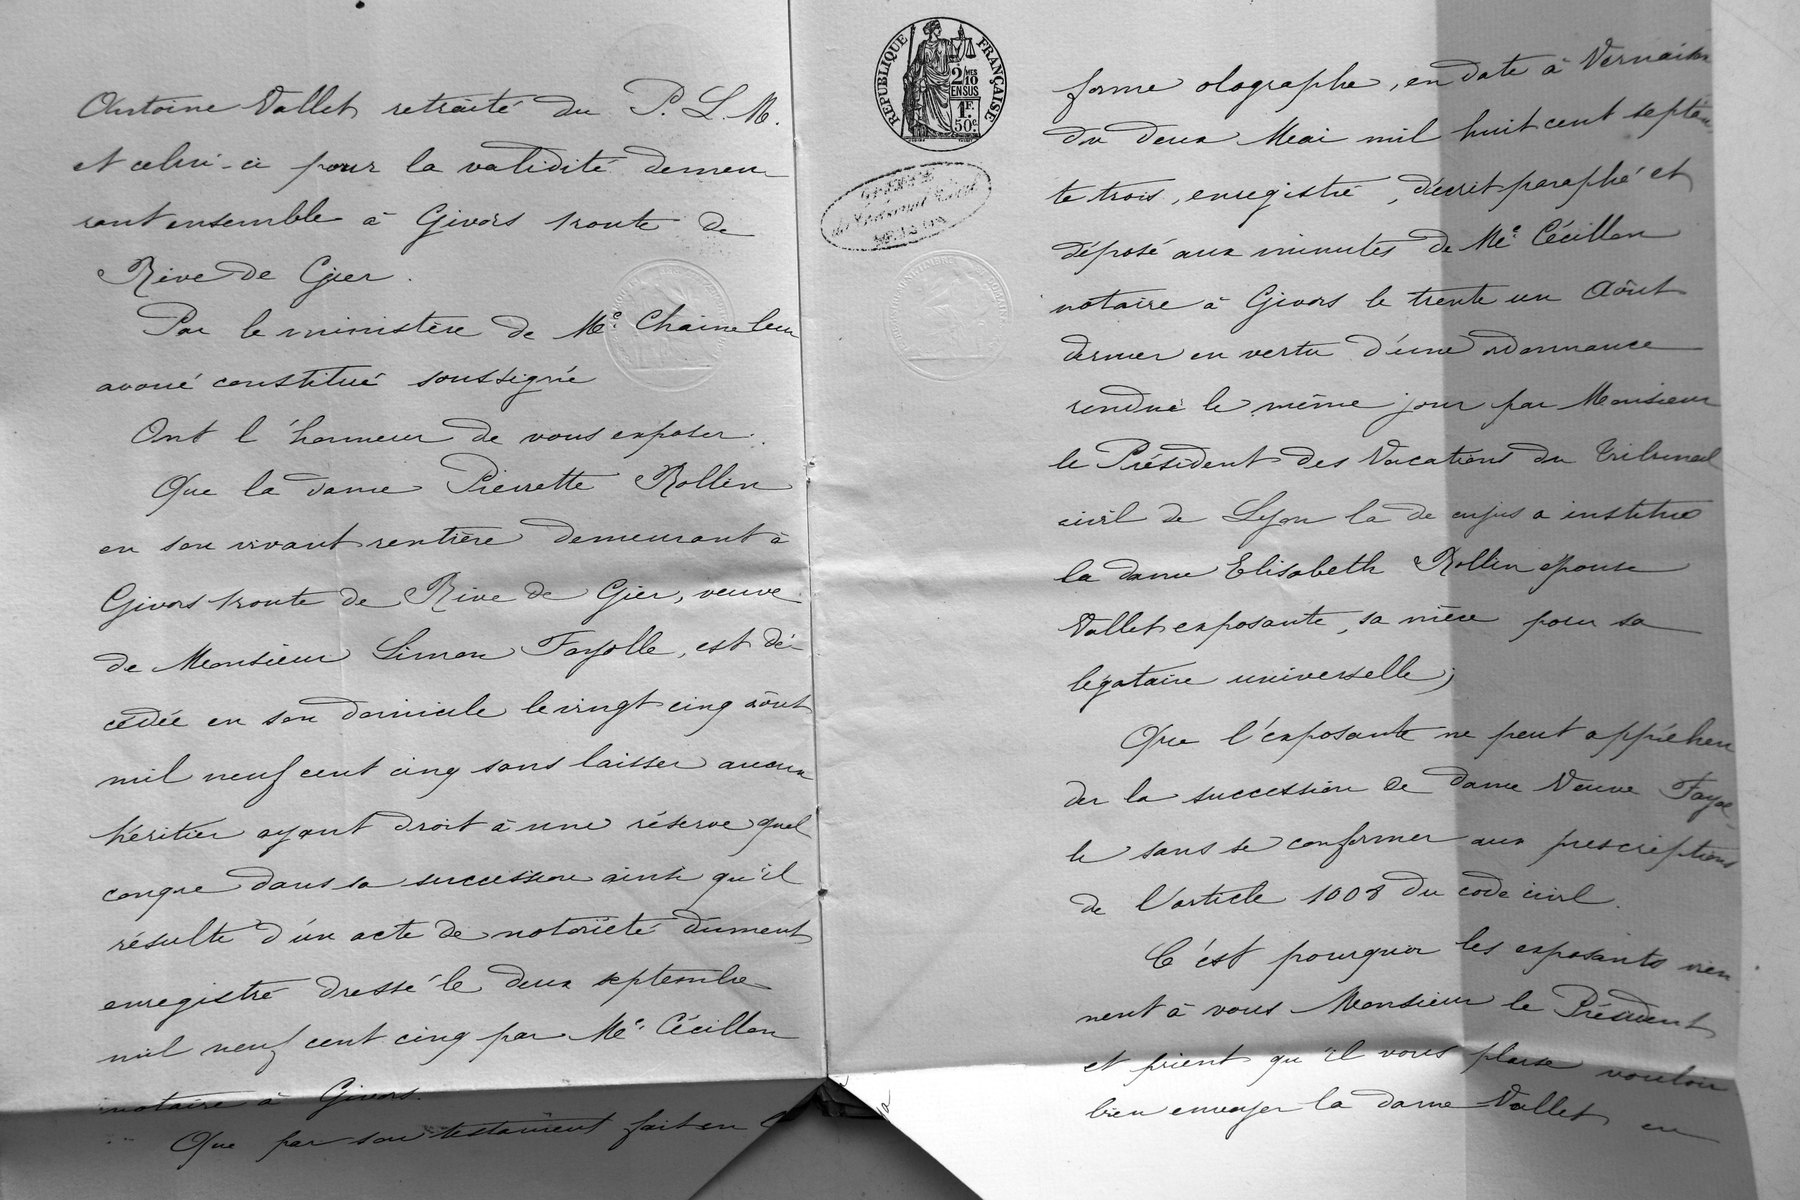 Antoine Vallet retraité du P. L. M.
et celui-ci pour la validité demeu-
rant ensemble à Givors route de
Rive de Gier.
Par le ministère de Me. Chaine leur
avoué constitué soussigné
Ont l'honneur de vous exposer:
Que la dame Pierrette Rollin
en son vivant rentière demeurant à
Givors route de Rive de Gier, veuve
de Monsieur Simon Fayolle, est dé-
cédée en son domicile le vingt cinq août
mil neuf cent cinq sans laisser aucun
héritier ayant droit à une réserve quel
conque dans sa succession ainsi qu'il
résulte d'un acte de notoriété dûment
enregistré dressé le deux septembre
mil neuf cent cinq par Me. Cécillon
notaire à Givors.
Que par son testament fait en
RÉPUBLIQUE FRANÇAISE
2/10 MES
EN SUS
1F.
50c.
forme olographe, en date à Vernaison
du deux Mai mil huit cent septan
te trois, enregistré, décrit paraphé et
déposé aux minutes de Me. Cécillon
notaire à Givors le trente un Août
dernier en vertu d'une ordonnance
rendue le même jour par Monsieur
le Président des Vacations du Tribunal
civil de Lyon la de cujus a institué
la dame Elisabeth Rollin épouse
Vallet exposante, sa nièce pour sa
légataire universelle;
Que l'exposante ne peut appréhen
der la succession de dame Veuve Fayol-
le sans se conformer aux prescriptions
de l'article 1008 du code civil.
C'est pourquoi les exposants vien-
nent à vous Monsieur le Président
et prient qu'il vous plaise vouloir
bien envoyer la dame Vallet en